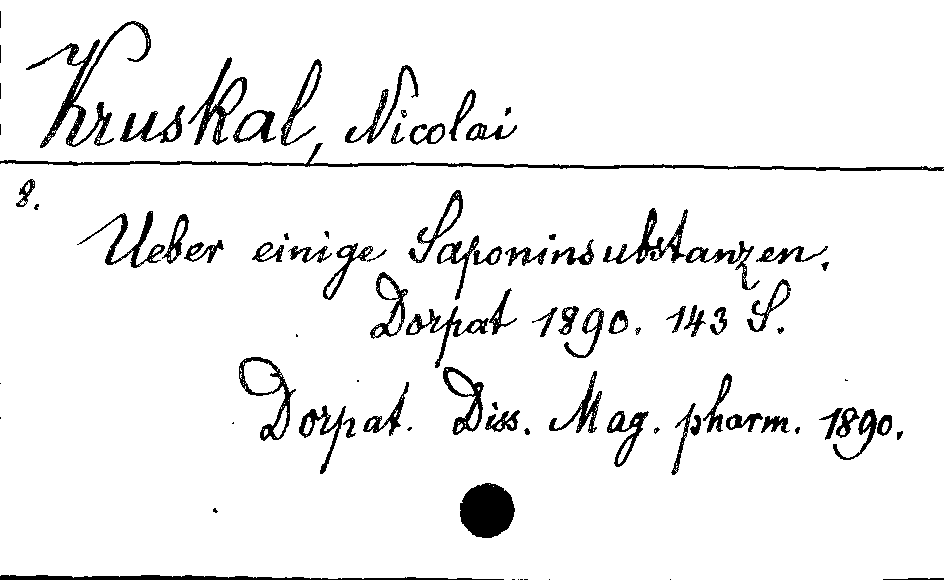 Kruskal, Nicolai
8.
Ueber einige Saponinsubstanzen.
Dorpat 1890. 143 S.
Dorpat. Diss. Mag. pharm. 1890.